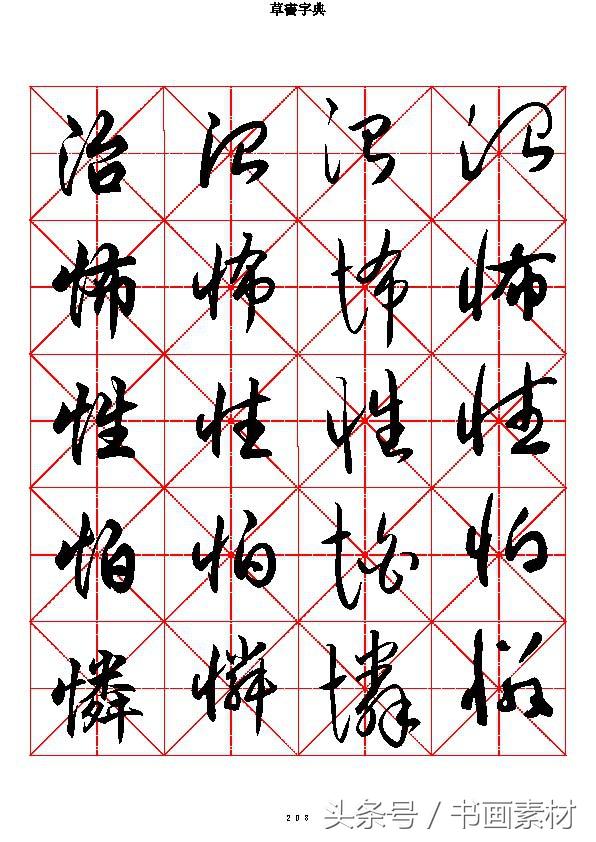 草書字典
治 治 治 治
怖 怖 怖 怖
性 性 性 性
怕 怕 怕 怕
憐 憐 憐 憐
208
头条号 / 书画素材